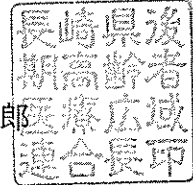 長崎県後
期高齢者
医療広域
連合長印
郎